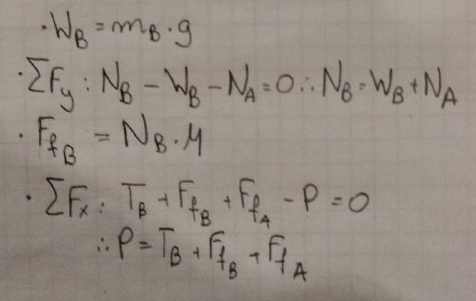 · W_B = m_B · g
· ΣF_y : N_B − W_B − N_A = 0 ∴ N_B = W_B + N_A
· F_f_B = N_B · μ
· ΣF_x : T_B + F_f_B + F_f_A − P = 0
∴ P = T_B + F_f_B + F_f_A